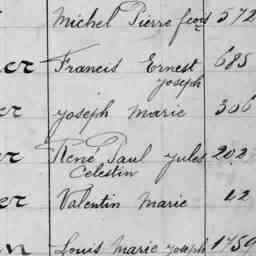 Michel Pierre 572
er Francis Ernest 685
Joseph
er joseph Marie 306
er René Paul jules 202
Celestin
er Valentin Marie 12
Louis Marie joseph 1759